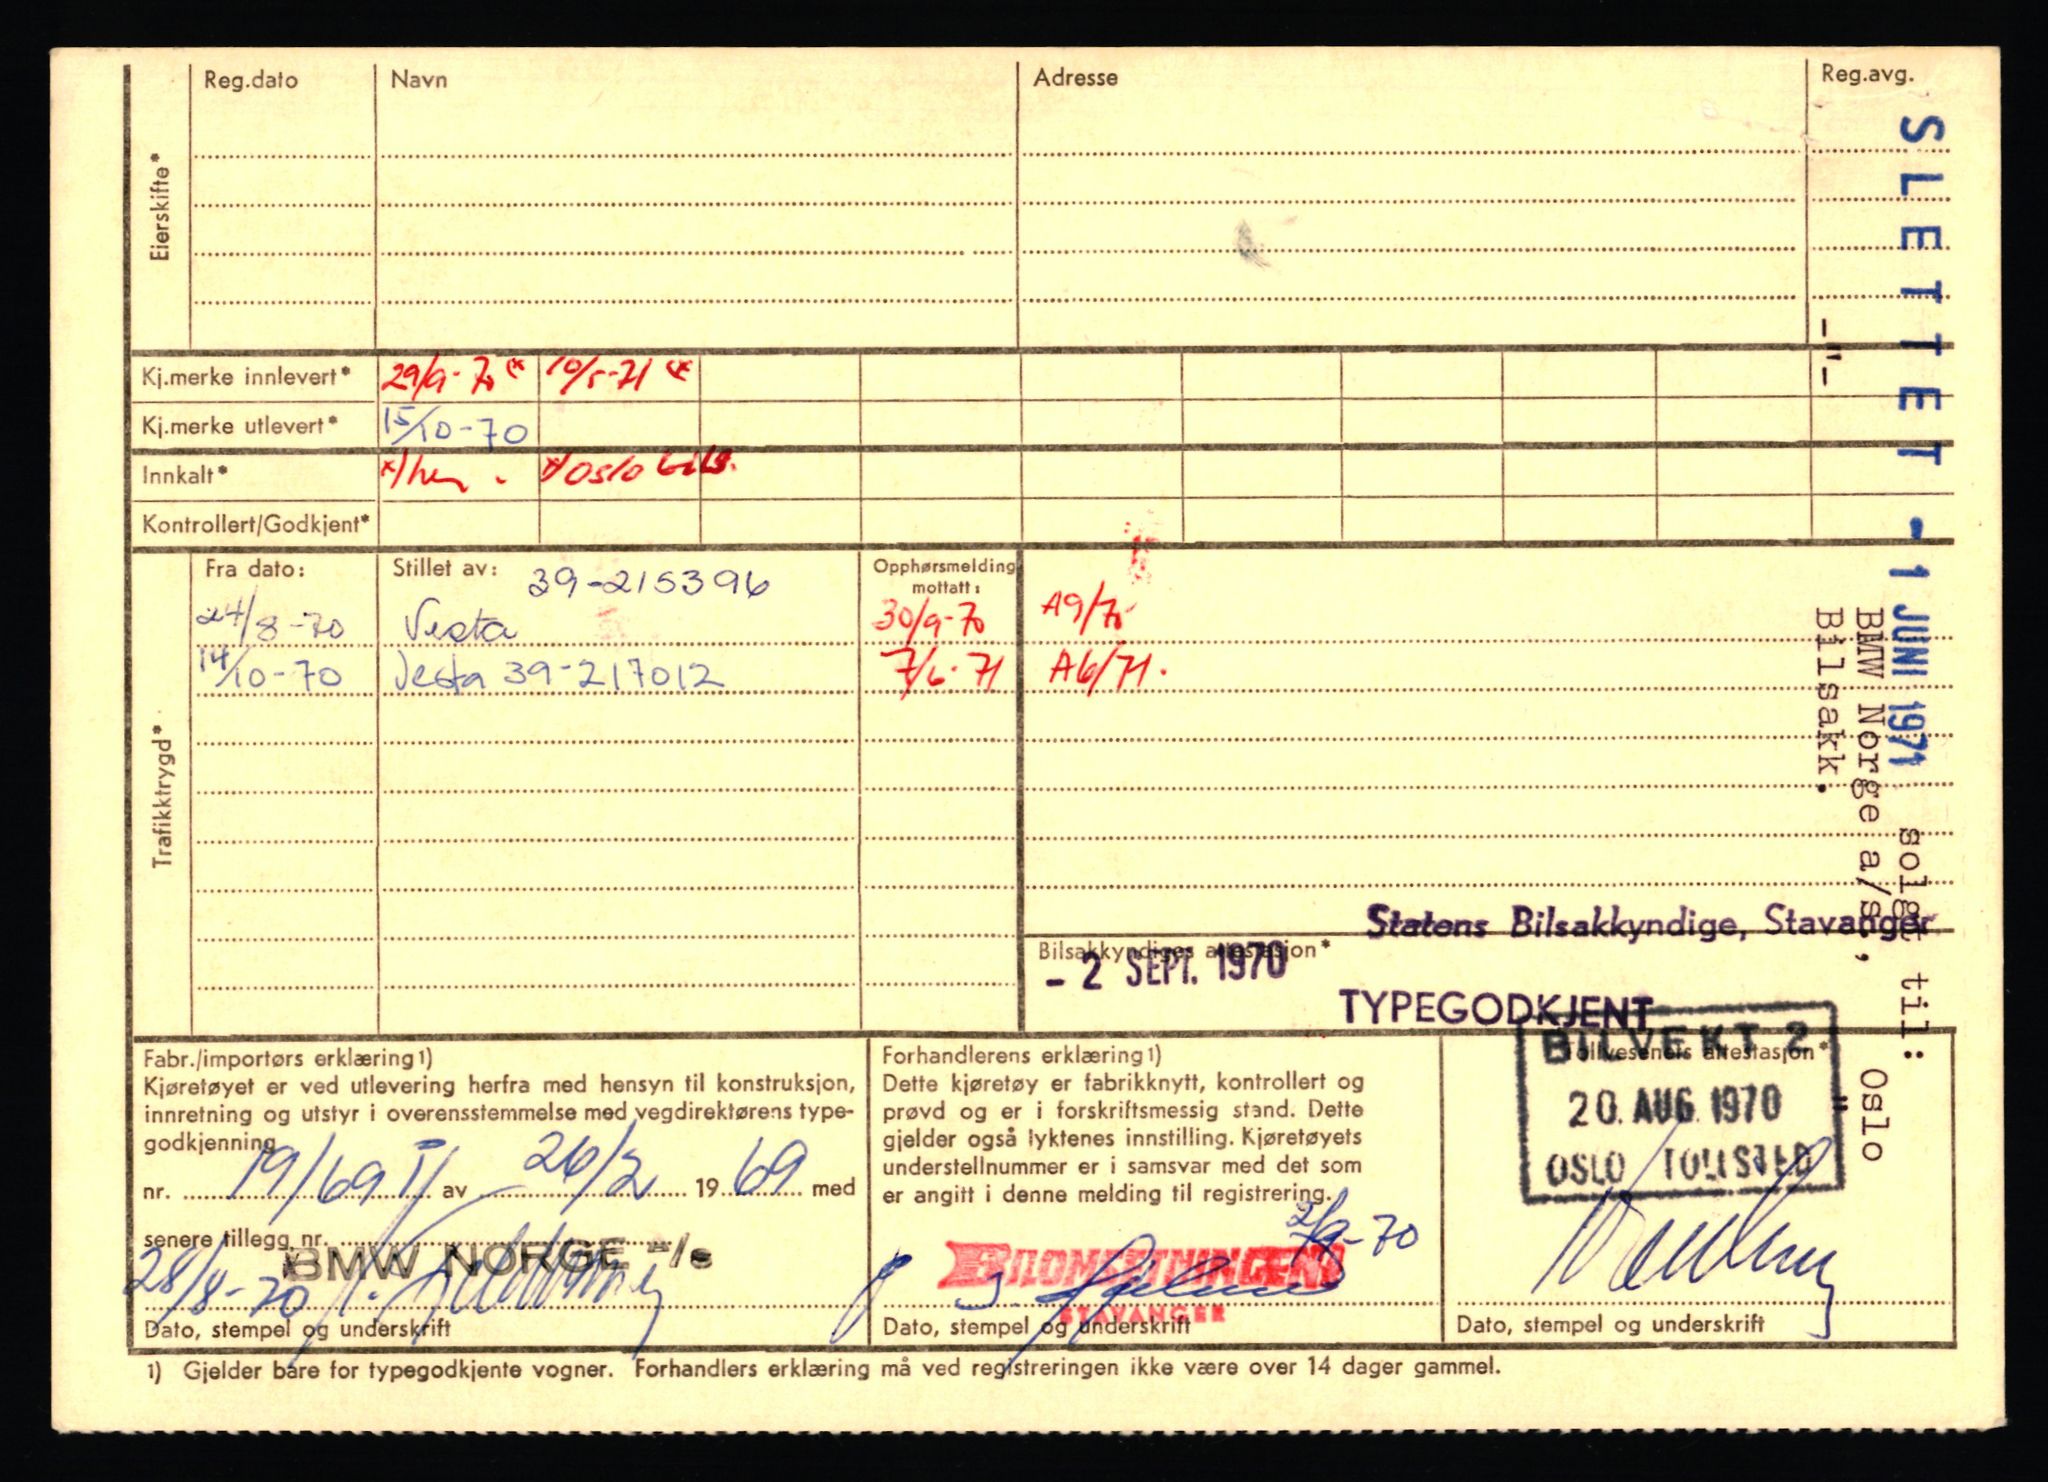 Reg.dato Navn Adresse Reg.avg.
Eierskifte*
Kj.merke innlevert* 29/9-70 (* 10/5-71 (*
Kj.merke utlevert* 15/10-70
Innkalt* */her. */Oslo bils.
Kontrollert/Godkjent*
Trafikktrygd*
Fra dato: Stillet av: 39-215396 Opphørsmelding mottatt:
24/8-70 Vesta 30/9-70 A9/70
14/10-70 Vesta 39-217012 7/6-71 A6/71.
SLETTET - 1 JUNI 1971 solgt til:
BMW Norge a/s, Oslo
Bilsakk. "
-"-
Statens Bilsakkyndige, Stavanger
Bilsakkyndiges attestasjon*
- 2 SEPT. 1970
TYPEGODKJENT
Fabr./importørs erklæring1)
Kjøretøyet er ved utlevering herfra med hensyn til konstruksjon,
innretning og utstyr i overensstemmelse med vegdirektørens type-
godkjenning
nr. 19/69 I/ av 26/2 1969 med
senere tillegg nr.
BMW NORGE a/s
28/8-70
Dato, stempel og underskrift
Forhandlerens erklæring1)
Dette kjøretøy er fabrikknytt, kontrollert og
prøvd og er i forskriftsmessig stand. Dette
gjelder også lyktenes innstilling. Kjøretøyets
understellnummer er i samsvar med det som
er angitt i denne melding til registrering.
2/9-70
BILOMSETNINGEN
STAVANGER
Dato, stempel og underskrift
Tollvesenets attestasjon*
BILVEKT 2
20. AUG. 1970
OSLO TOLLSTED
Dato, stempel og underskrift
1) Gjelder bare for typegodkjente vogner. Forhandlers erklæring må ved registreringen ikke være over 14 dager gammel.